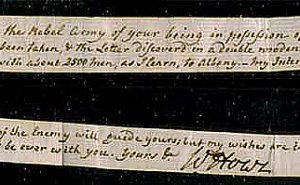 the Rebel Army of your being in possession of
been taken, & the Letter discovered in a double wooden
with about 2500 men, as I learn, to Albany.— my Inten
of the Enemy will guide yours, but my wishes are
be ever with you. Yours &c WHowe